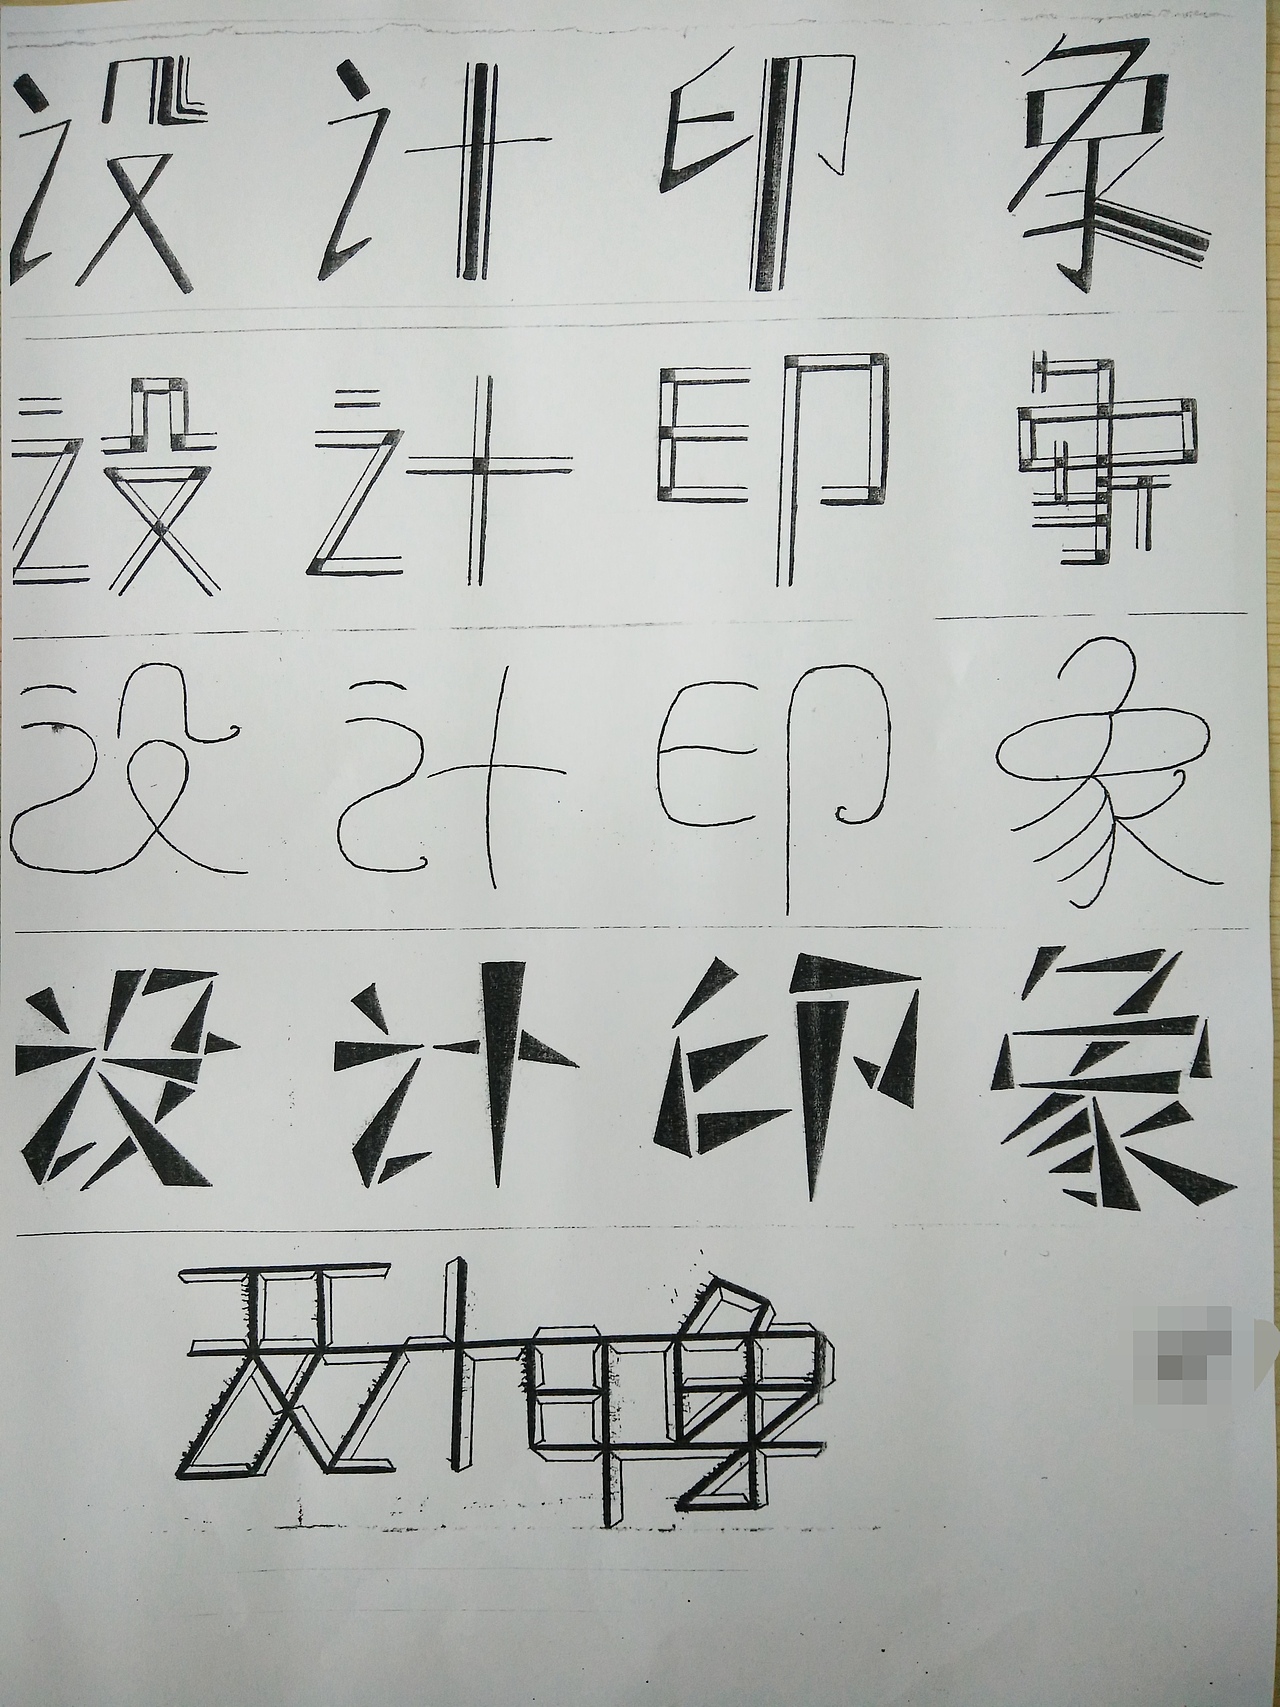 设计印象
设计印象
设计印象
设计印象
设计印象